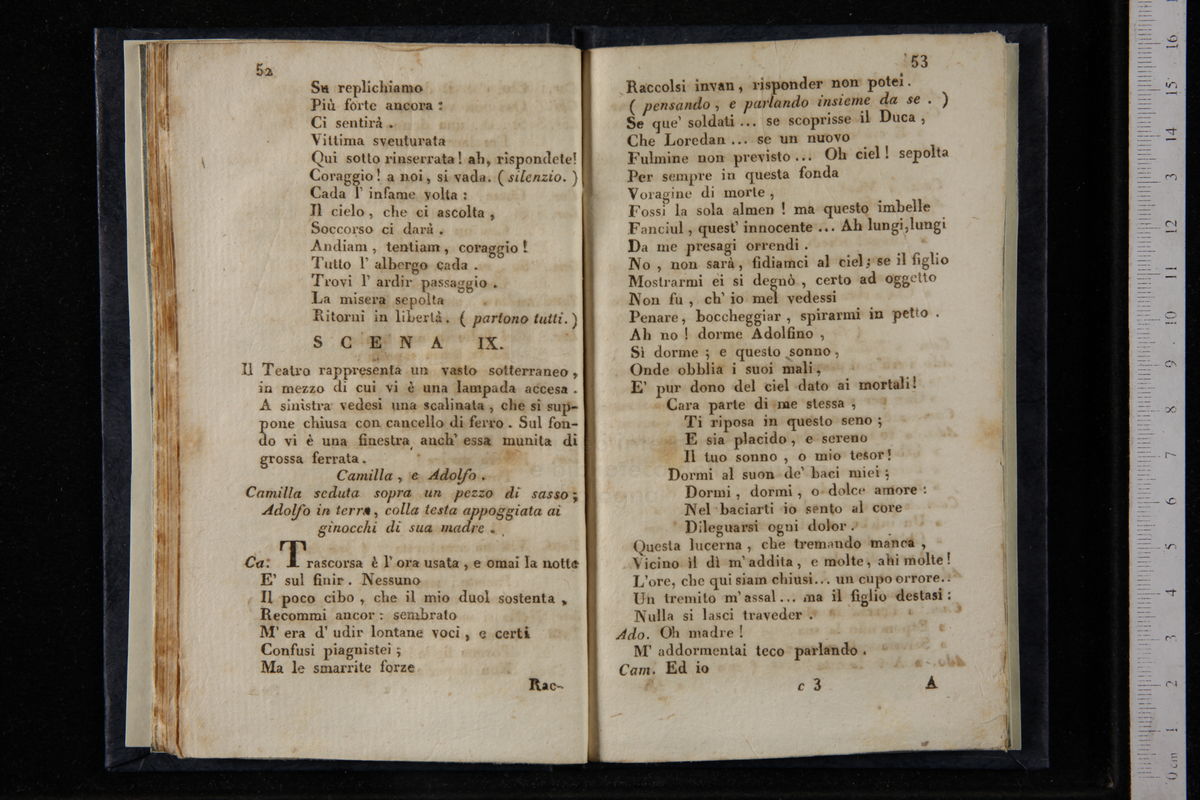 52
Su replichiamo
Più forte ancora :
Ci sentirà .
Vittima sveuturata
Qui sotto rinserrata ! ah, rispondete!
Coraggio ! a noi , si vada. ( silenzio. )
Cada l' infame volta :
Il cielo , che ci ascolta ,
Soccorso ci darà .
Andiam , tentiam , coraggio !
Tutto l' albergo cada .
Trovi l' ardir passaggio .
La misera sepolta
Ritorni in libertà . ( partono tutti. )
SCENA IX.
Il Teatro rappresenta un vasto sotterraneo ,
in mezzo di cui vi è una lampada accesa .
A sinistra vedesi una scalinata , che si sup-
pone chiusa con cancello di ferro . Sul fon-
do vi è una finestra anch' essa munita di
grossa ferrata .
Camilla , e Adolfo .
Camilla seduta sopra un pezzo di sasso ;
Adolfo in terra , colla testa appoggiata ai
ginocchi di sua madre .
Ca: Trascorsa è l' ora usata , e omai la notte
E' sul finir . Nessuno
Il poco cibo , che il mio duol sostenta ,
Recommi ancor : sembrato
M' era d' udir lontane voci , e certi
Confusi piagnistei ;
Ma le smarrite forze
Rac-
53
Raccolsi invan , risponder non potei .
( pensando , e parlando insieme da se . )
Se que' soldati ... se scoprisse il Duca ,
Che Loredan ... se un nuovo
Fulmine non previsto ... Oh ciel ! sepolta
Per sempre in questa fonda
Voragine di morte ,
Fossi la sola almen ! ma questo imbelle
Fanciul , quest' innocente ... Ah lungi, lungi
Da me presagi orrendi .
No , non sarà , fidiamci al ciel ; se il figlio
Mostrarmi ei si degnò , certo ad oggetto
Non fu , ch' io mel vedessi
Penare , boccheggiar , spirarmi in petto .
Ah no ! dorme Adolfino ,
Sì dorme ; e questo sonno ,
Onde obblia i suoi mali ,
E' pur dono del ciel dato ai mortali !
Cara parte di me stessa ,
Ti riposa in questo seno ;
E sia placido , e sereno
Il tuo sonno , o mio tesor !
Dormi al suon de' baci miei ;
Dormi , dormi , o dolce amore :
Nel baciarti io sento al core
Dileguarsi ogni dolor .
Questa lucerna , che tremando manca ,
Vicino il dì m' addita , e molte , ahi molte !
L'ore, che qui siam chiusi... un cupo orrore..
Un tremito m' assal ... ma il figlio destasi :
Nulla si lasci traveder .
Ado. Oh madre !
M' addormentai teco parlando .
Cam. Ed io
c 3 A
0 cm 1 2 3 4 5 6 7 8 9 10 11 12 13 14 15 16